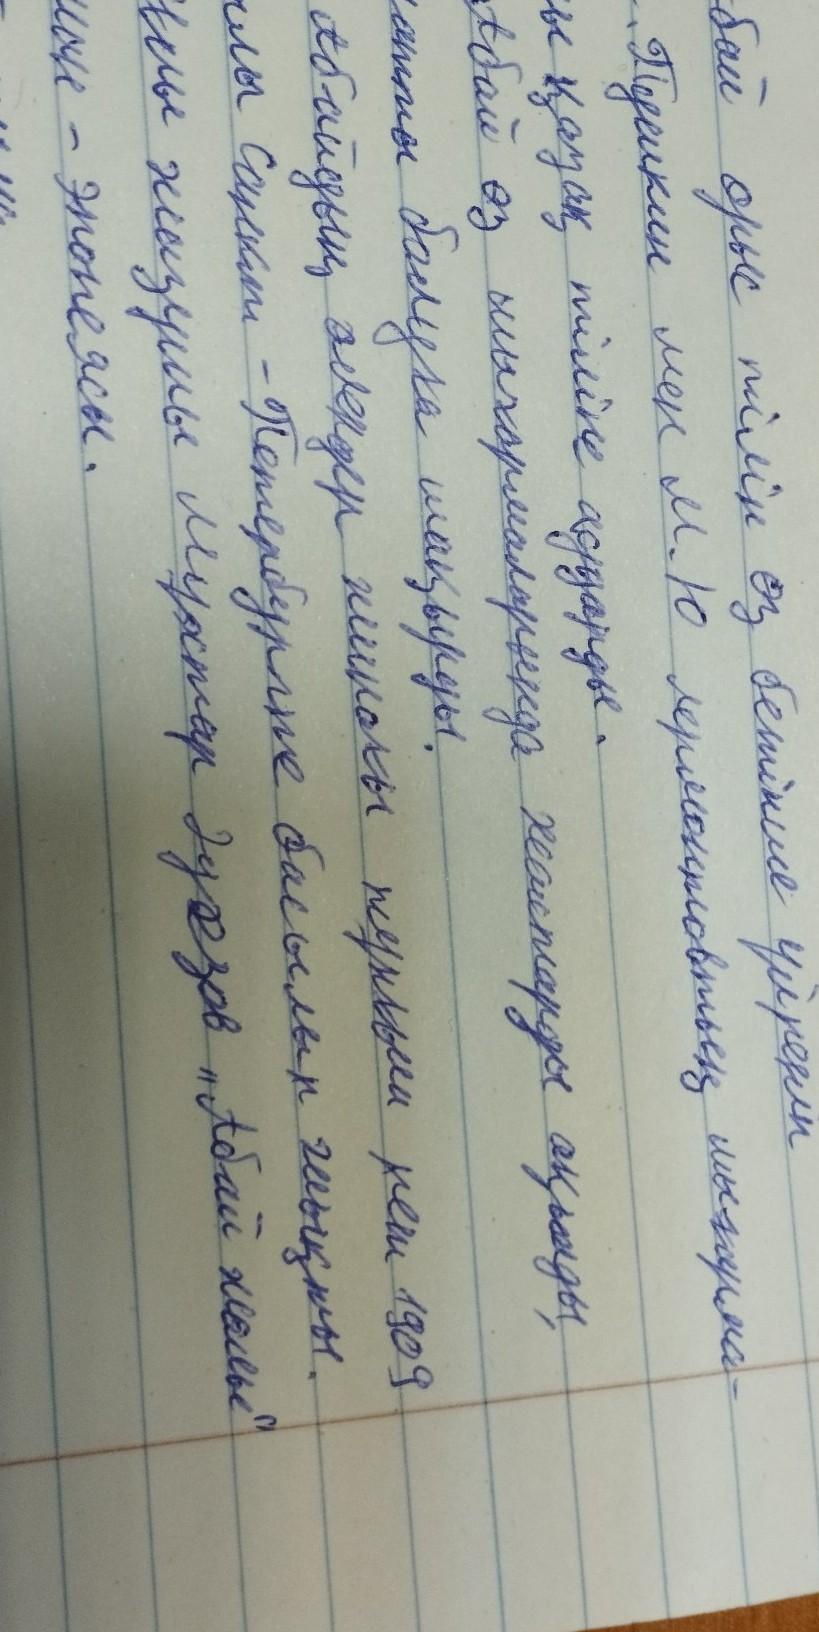 бай орыс тілін өз бетінше үйреніп
Пушкин мен М.Ю Лермонтовтың шығарма-
ы қазақ тіліне аударды.
Абай өз шығармаларында жастарды ақылды,
атты болуға шақырды.
Абайдың өлеңдер жинағы тұңғыш рет 1909
ылы Санкт-Петербургте басылып шықты.
жазушы Мухтар Әуезов "Абай жолы"
эпопеясы.